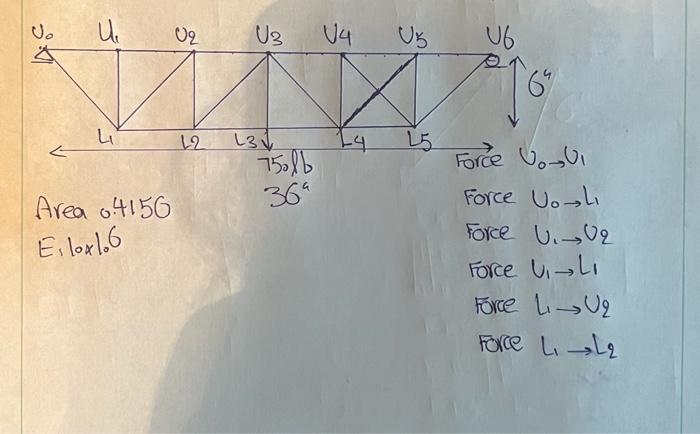 U0 U1 U2 U3 U4 U5 U6
6"
L1 L2 L3 L4 L5
750lb
36"
Area 0.4156
E, 10x10^6
Force U0→U1
Force U0→L1
Force U1→U2
Force U1→L1
Force L1→U2
Force L1→L2